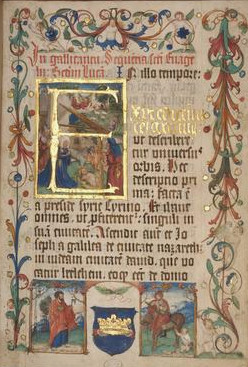 In gallicantu. Sequentia sci euāge
lii: Scdm Lucā. I illo tempore:
ut describere
tur uniuersu'
orbis. Hec
descriptio pri
ma: facta ē
a preside syrie cyrino. Et ibant
omnes. ut profiterent' singuli in
suā ciuitatē. Ascendit aut et Jo
seph a galilea de ciuitate nazareth.
in iudeam ciuitatē dauid. que vo
catur bethleem. eo q eēt de domo